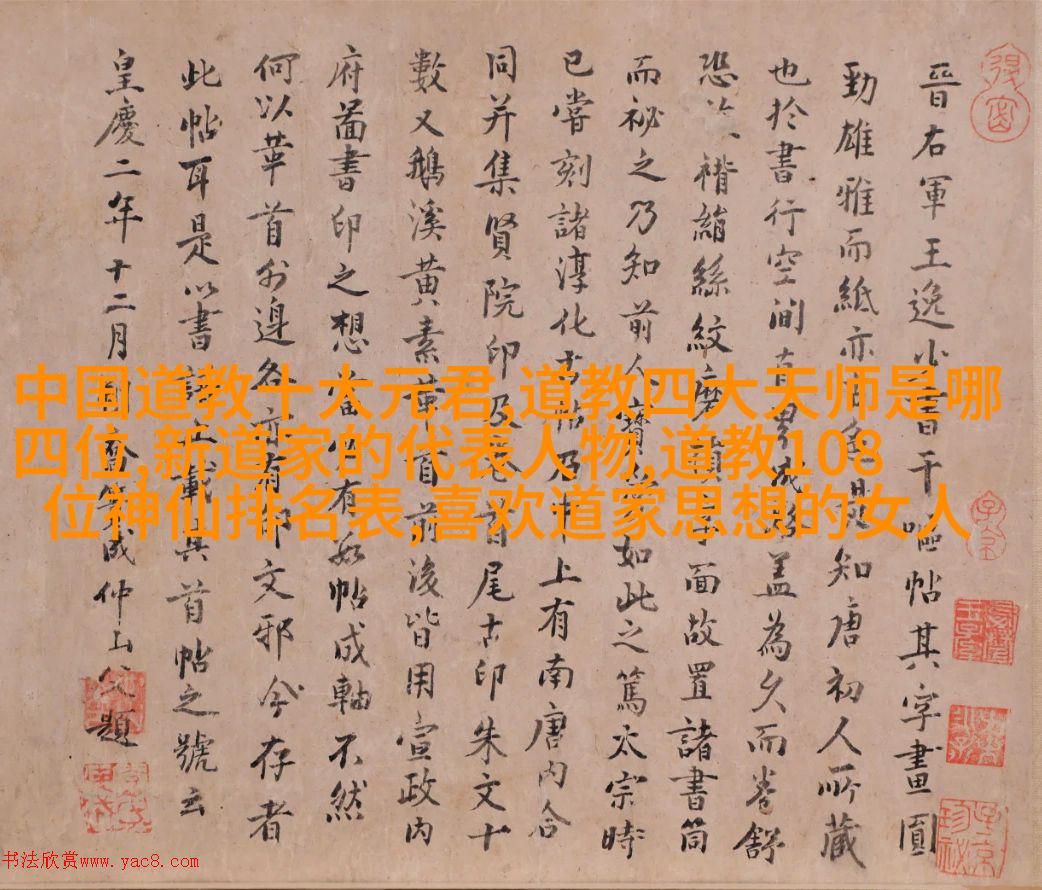 中国道教十大元君,道教四大天师是哪
四位,新道家的代表人物,道教108
位神仙排名表,喜欢道家思想的女人
晉右軍王逸少干嘔帖其字畫圓
勁雄雅而紙亦知唐初人所藏
也於書行空間蓋為久而卷舒
恐褙絹絲紋磨面故置諸書筒
而祕之乃知前人寶如此之篤太宗時
已嘗刻諸淳化帖乃上有南唐內合
同并集賢院印及首尾古印朱文十
數又鵝溪黃素首前後皆用宣政內
府啚書印之想當有帖成軸不然
何以首外邊各有文邪今存者
此帖耳是以書譜止載其首帖之號云
皇慶二年十二月成仲山父題
书法欣赏www.yac8.com